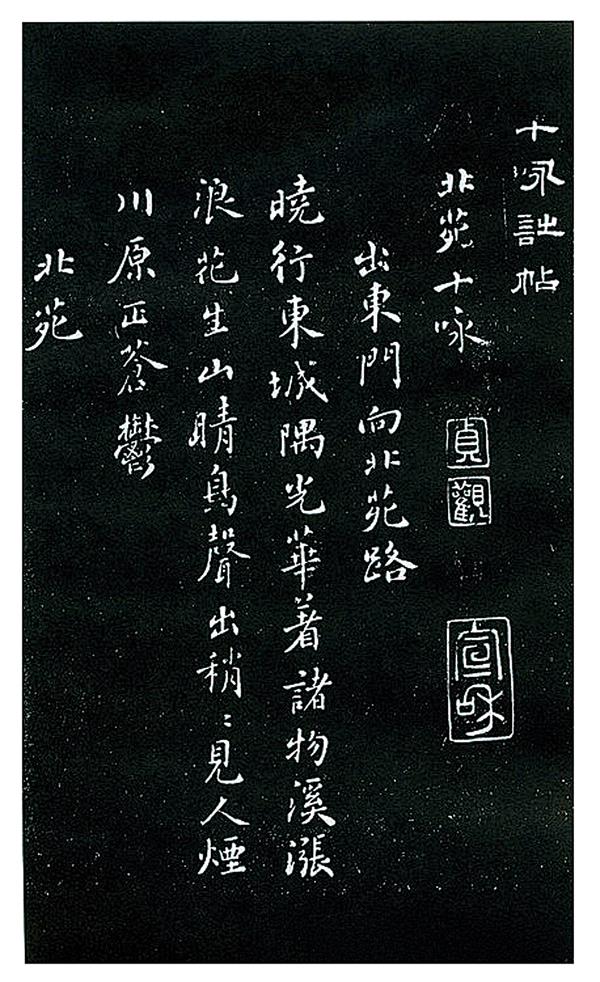 十咏詩帖
北苑十咏
貞觀
宣和
出東門向北苑路
曉行東城隅光華著諸物溪漲
浪花生山晴鳥聲出稍〻見人煙
川原正蒼鬱
北苑